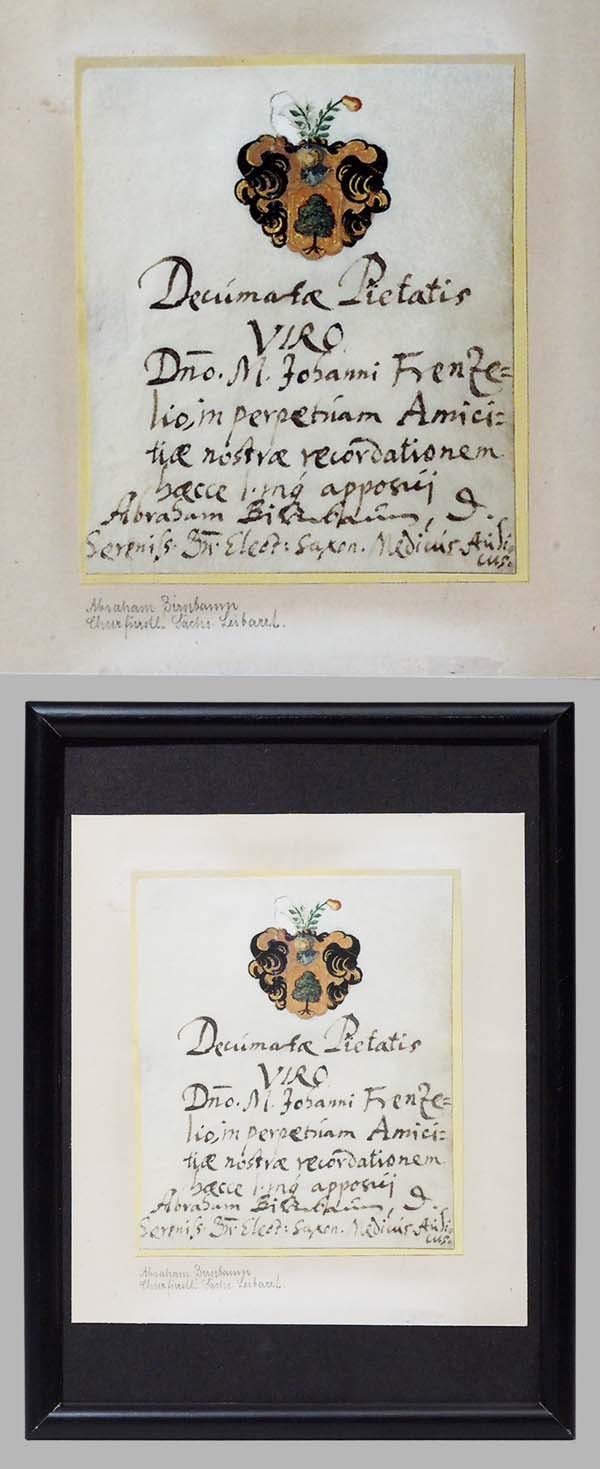 Decumatæ Pietatis
VIRO
Dn̄o. M. Johanni Frenze=
lio, in perpetuam Amici=
tiæ nostræ recordationem
hæcce l. mq́ apposui
Abraham Birnbaum, D.
Sereniss. Elect: Saxon. Medicus Auli
cus.
Abraham Birnbamp
Churfürstl. Sächs. Leibarzt.
Decumatæ Pietatis
VIRO
Dn̄o. M. Johanni Frenze=
lio, in perpetuam Amici=
tiæ nostræ recordationem
hæcce l. mq́ apposui
Abraham Birnbaum, D.
Sereniss. Elect: Saxon. Medicus Auli
cus.
Abraham Birnbamp
Churfürstl. Sächs. Leibarzt.